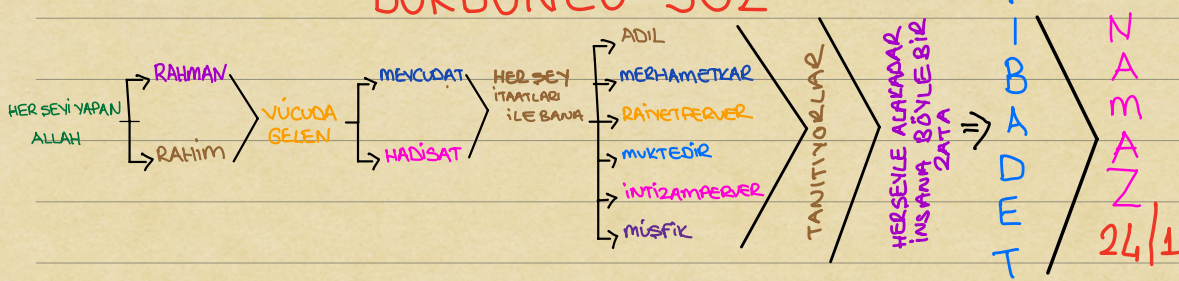 DÖRDÜNCÜ SÖZ
HER ŞEYİ YAPAN
ALLAH
RAHMAN
RAHİM
VÜCUDA
GELEN
MEVCUDAT
HADİSAT
HER ŞEY
İTAATLARI
İLE BANA
ADIL
MERHAMETKAR
RAİYETPERVER
MUKTEDİR
İNTİZAMPERVER
MÜŞFİK
TANITIYORLAR
HERSEYLE ALAKADAR
İNSANA BÖYLE BİR
ZATA
İBADET
NAMAZ
24/1